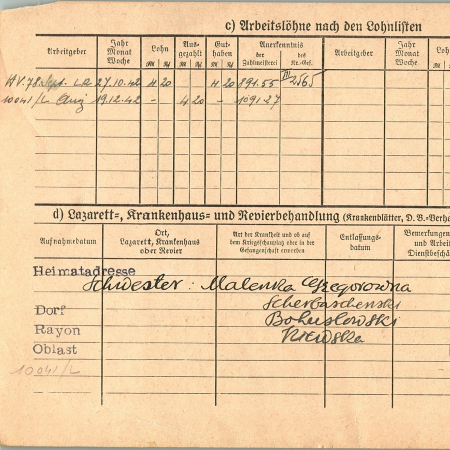 c) Arbeitslöhne nach den Lohnlisten
Arbeitgeber Jahr Monat Woche Lohn Ausgezahlt Guthaben Anerkenntnis der Zahlmeisterei des Kr.-Gef. Arbeitgeber Jahr Monat Woche Lohn
ℛℳ ₰ ℛℳ ₰ ℛℳ ₰
Sept. 27.10.42 4 20 4 20 891.55 III 2565
10041/L Aug 19.12.42 - 4 20 - 1091.27
d) Lazarett-, Krankenhaus- und Revierbehandlung (Krankenblätter, D. B.-Verha
Aufnahmedatum Ort, Lazarett, Krankenhaus oder Revier Art der Krankheit und ob auf dem Kriegsschauplatz oder in der Gefangenschaft erworben Entlassungsdatum Bemerkungen und Arbeit Dienstbeschä
Heimatadresse
Schwester: Malenka Gregorowna
Dorf Scherbaschenski
Rayon Bohuslowski
Oblast Kiewska
10041/L